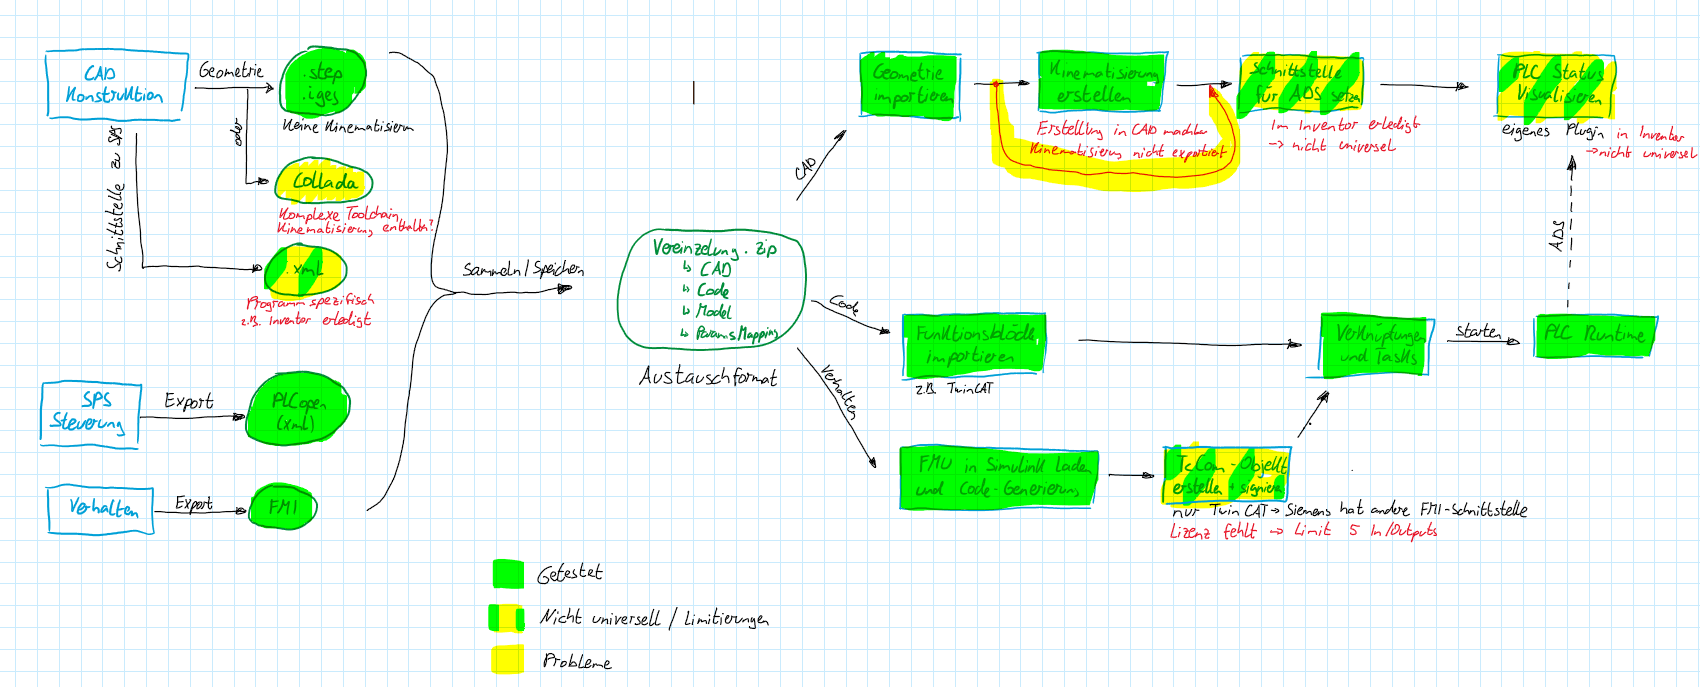 CAD
Konstruktion
Geometrie
.step
.iges
Keine Kinematisierun
oder
Collada
Komplexe Toolchain,
Kinematisierung enthalten?
Schnittstelle zu SPS
.xml
Programmspezifisch
z.B. Inventor erledigt
SPS
Steuerung
Export
PLCopen
(xml)
Verhalten
Export
FMI
Sammeln/Speichern
Vereinzelung.zip
↳ CAD
↳ Code
↳ Model
↳ ParamsMapping
Austauschformat
CAD
Code
Verhalten
Geometrie
importieren
Kinematisierung
erstellen
Erstellung in CAD machbar
Kinematisierung nicht exportiert
Schnittstelle
für ADS setzen
Im Inventor erledigt
→ nicht universel
PLC Status
Visualisieren
eigenes Plugin in Inventor
→ nicht universel
ADS
Funktionsblöcke
importieren
z.B. TwinCAT
Verknüpfungen
und Tasks
starten
PLC Runtime
FMU in Simulink laden
und Code-Generierung
TcCom-Objekt
erstellen + signieren
nur TwinCAT → Siemens hat andere FMI-Schnittstelle
Lizenz fehlt → Limit 5 In/Outputs
Getestet
Nicht universell / Limitierungen
Probleme